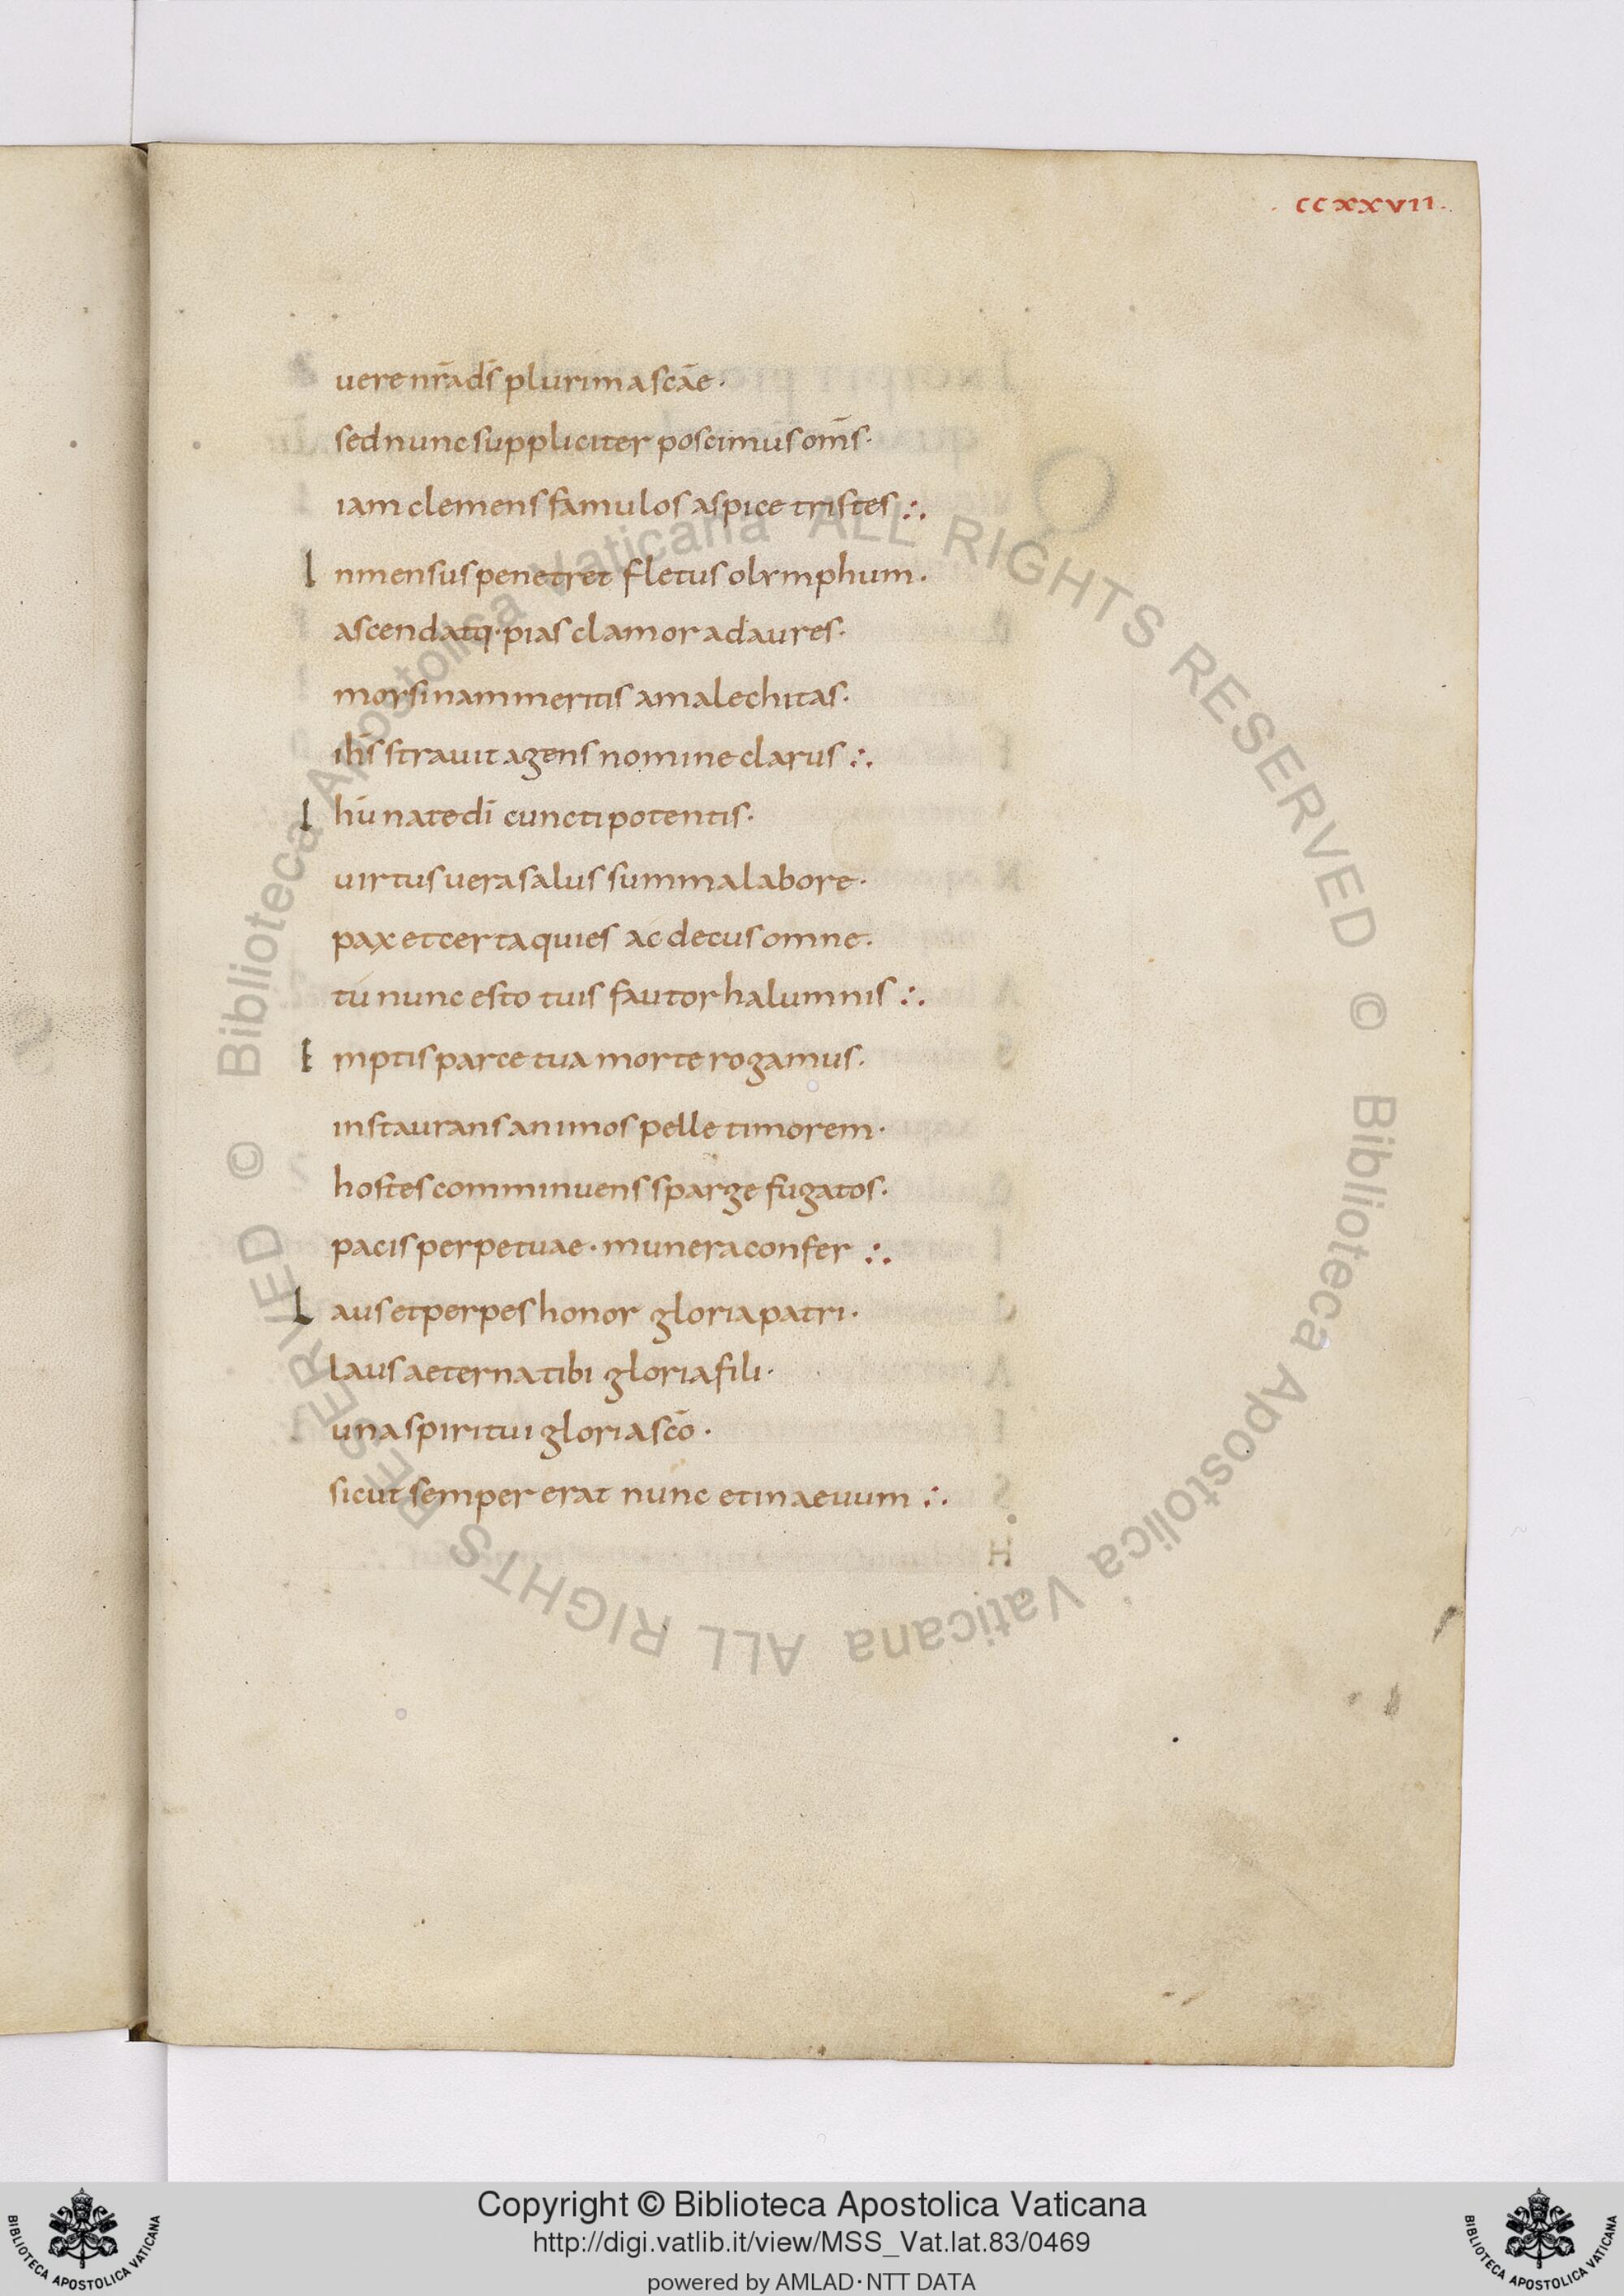 · CCXXVII ·
uere nr̄a ds̄ plurima scāe ·
sed nunc suppliciter poscimus om̄s ·
iam clemens famulos aspice tristes ∴
I nmensus penetret fletus olymphum ·
ascendatq · pias clamor ad aures ·
mors inam meritis amalechitas ·
ih̄s strauit agens nomine clarus ∴
I hū nate dī cunctipotentis ·
uirtus uera salus summa labore ·
pax et certa quies ac decus omne ·
tú nunc esto tuis fautor halumnis ∴
E mptis parce tua morte rogamus ·
instaurans animos pelle timorem ·
hostes comminuens sparge fugatos ·
pacis perpetuae · munera confer ∴
L aus et perpes honor gloria patri ·
laus aeterna tibi gloria fili ·
una spiritui gloria scō ·
sicut semper erat nunc et in aeuum ∴
© Biblioteca Apostolica Vaticana ALL RIGHTS RESERVED © Biblioteca Apostolica Vaticana ALL RIGHTS RESERVED
BIBLIOTECA APOSTOLICA VATICANA
Copyright © Biblioteca Apostolica Vaticana
http://digi.vatlib.it/view/MSS_Vat.lat.83/0469
powered by AMLAD·NTT DATA
BIBLIOTECA APOSTOLICA VATICANA